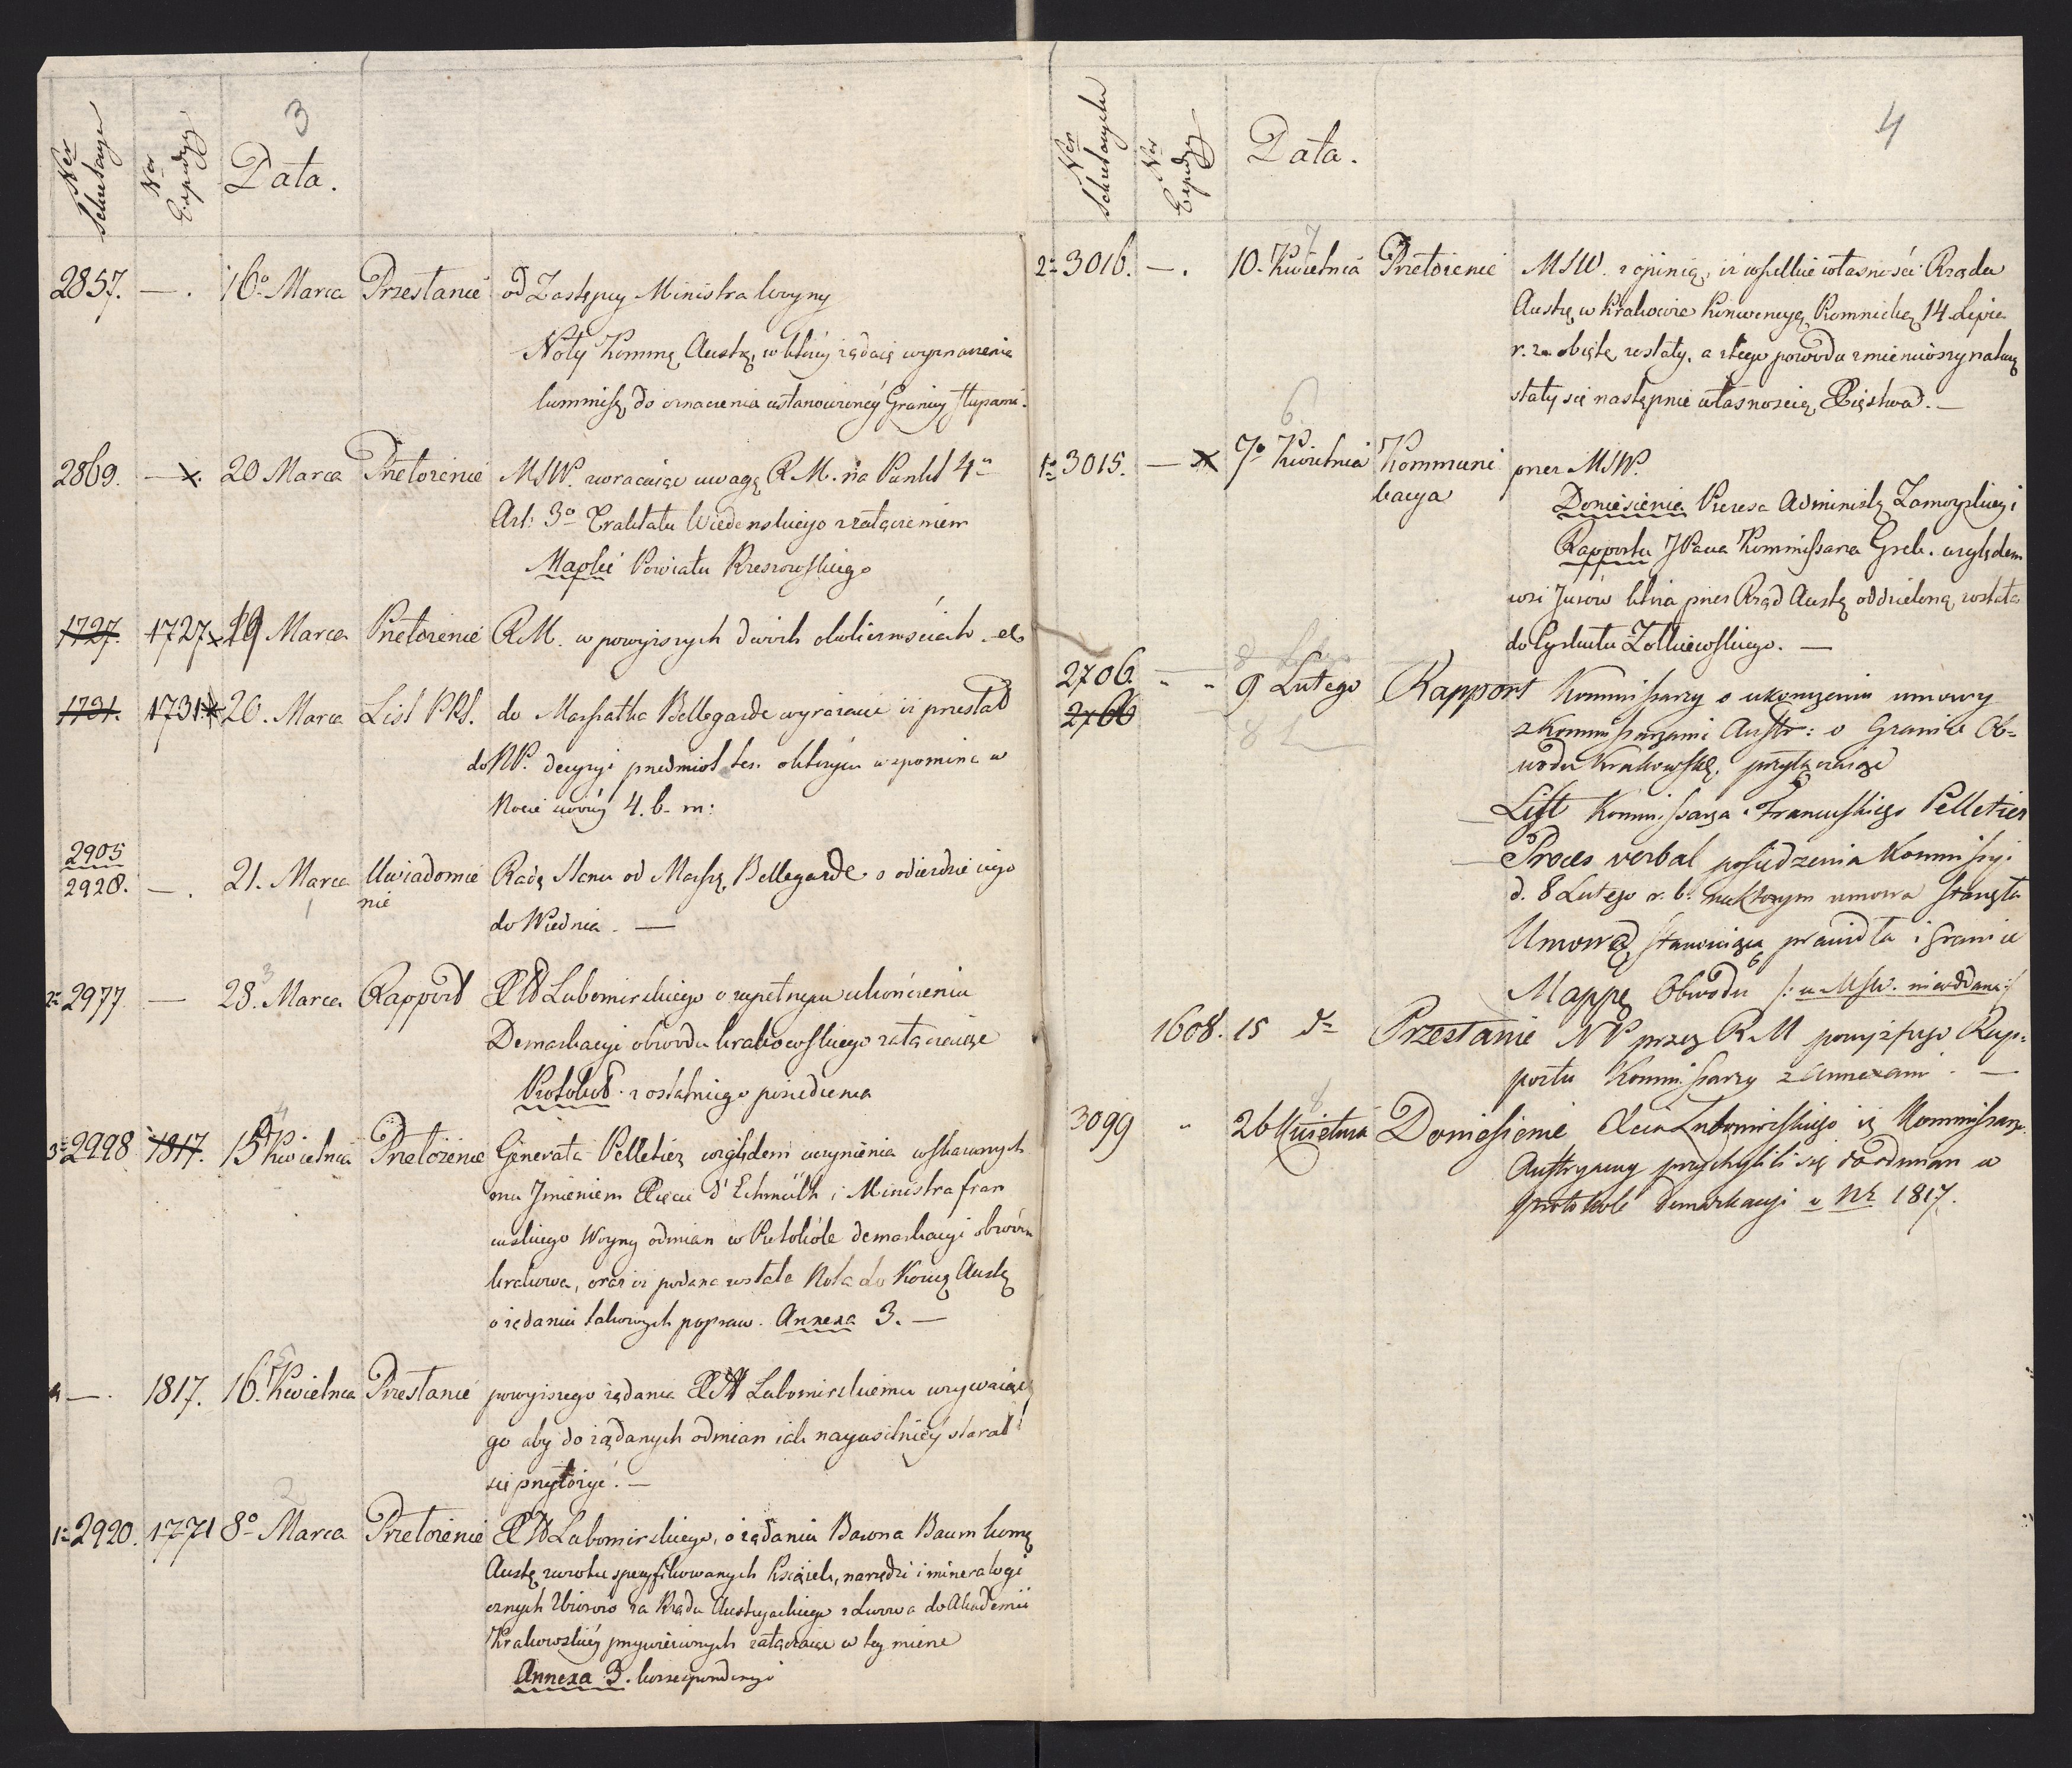 3
Ner Sekretarya
Ner Expedy
Data.
2857. — . 16º Marca Przesłanie od Zastępcy Ministra Woyny
Noty Kommę Austrę, w któréy żądaią wyznaczenia
kommisę, do oznaczenia ustanowionéy Granicy słupami.
2869. — x. 20 Marca Przełożenie MSW. zwracaiąc uwagę R.M. na Punkt 4º
Art: 3º Traktatu Wiedenskiego z załączeniem
Mapki Powiatu Rzeszowskiego
1727. 1727 x 19 Marca Przełożenie R.M. w powyższych dwóch okolicznościach
1731. 1731 x 20. Marca List PRS. do Marszałka Bellegarde wyrażaiąc iż przesłał
do NP. decyzyi przedmiot ten o którym wspomina w
Nocie swoiéy 4. b. m:
2905
2928. — . 21. Marca Uwiadomie Radę Stanu od Marszę, Bellegarde o odieździe iego
1 nie
do Wiednia. —
3
2º 2977 — 28. Marca Rapport XW Lubomirskiego o zupełnym ukończeniu
Demarkacyi obwodu krakowskiego załączaiąc
Protokół z ostatniego posiedzenia
4
3º 2998 1817. 15 Kwietnia Przełożenie Generała Pelletier względem uczynienia wskazanych
mu Jmieniem Xięcia d'Eckmühl i Ministra fran
cuskiego Woyny odmian w Protokóle demarkacyi obwodu
krakowa, oraz iż podana została Nota do Komę Austę
o żądaniu takowych popraw. Annexa 3. —
5
4 — . 1817. 16. Kwietnia Przesłanie powyższego żądania XW Lubomirskiemu wzywaiąc
go aby do żądanych odmian iak nayusilniéy starał
się przyłożyć. —
2
1º 2920. 1771 8º Marca Przełożenie XW Lubomirskiego, o żądaniu Barona Baum komę
Austę zwrotu specyfikowanych Książek, narzędzi i mineralogi
cznych Zbiorów za Rządu Austryackiego z Lwowa do Akademii
Krakowskiéy przywiezionych załączaiąc w tey mierze
Annexa 3. korrespondencyi
4
Ner Sekretaryatu
Ner Expedy
Data.
7
2º 3016. — . 10. Kwietnia Przełożenie MSW. z opinią, iż wszelkie własności Rządu
Austrę, w Krakowie Konwencyą Komnicką 14 Lipca
r. z. obięte zostały, a z tego powodu zmieniwszy naturę
stały się następnie własnością Xięstwa. —
6
1º 3015. — x 7º Kwietnia Kommuni przez MSW.
kacya
Doniesienia Prezesa Administrę Zamoyskiego i
Rapportu JPana Kommissarza Greb. względem
wsi Jusów która przez Rząd Austę oddzieloną została
do Cyrkułu Zółkiewskiego. —
2706. 9 Lutego Rapport Kommissarzy o ukończeniu umowy
2706
8 L
z Kommissarzami Austr: o Granice Ob=
wodu Krakowskę, przyłączaiąc
— List Kommissarza Francuskiego Pelletier
— Proces verbal posiedzenia Kommissyi
d. 8 Lutego r. b. na którym umowa stanęła
Umowę stanowiącą prawidła i granice
Mappę Obwodu /: w MSW. nieoddana :/
1608. 15 dº Przesłanie NP przez R.M powyższego Rap=
portu Kommissarzy z annexami. —
8
3099 " 26 Kwietnia Doniesienie Xcia Lubomirskiego iż Kommissarze
Austryaccy przychylili się do odmian w
protokole demarkacyi v Nr 1817.